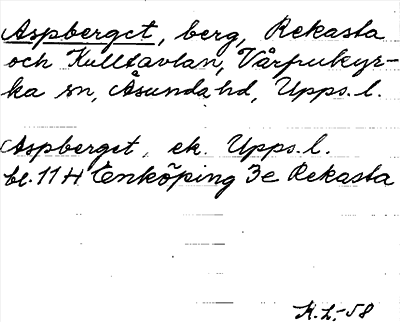 Aspberget, berg, Rekasta
och Kulltavlan, Vårfrukyr-
ka sn, Åsunda hd, Upps. l.
Aspberget, ek. Upps. l.
bl. 11 H Enköping 3e Rekasta
K.L.-58